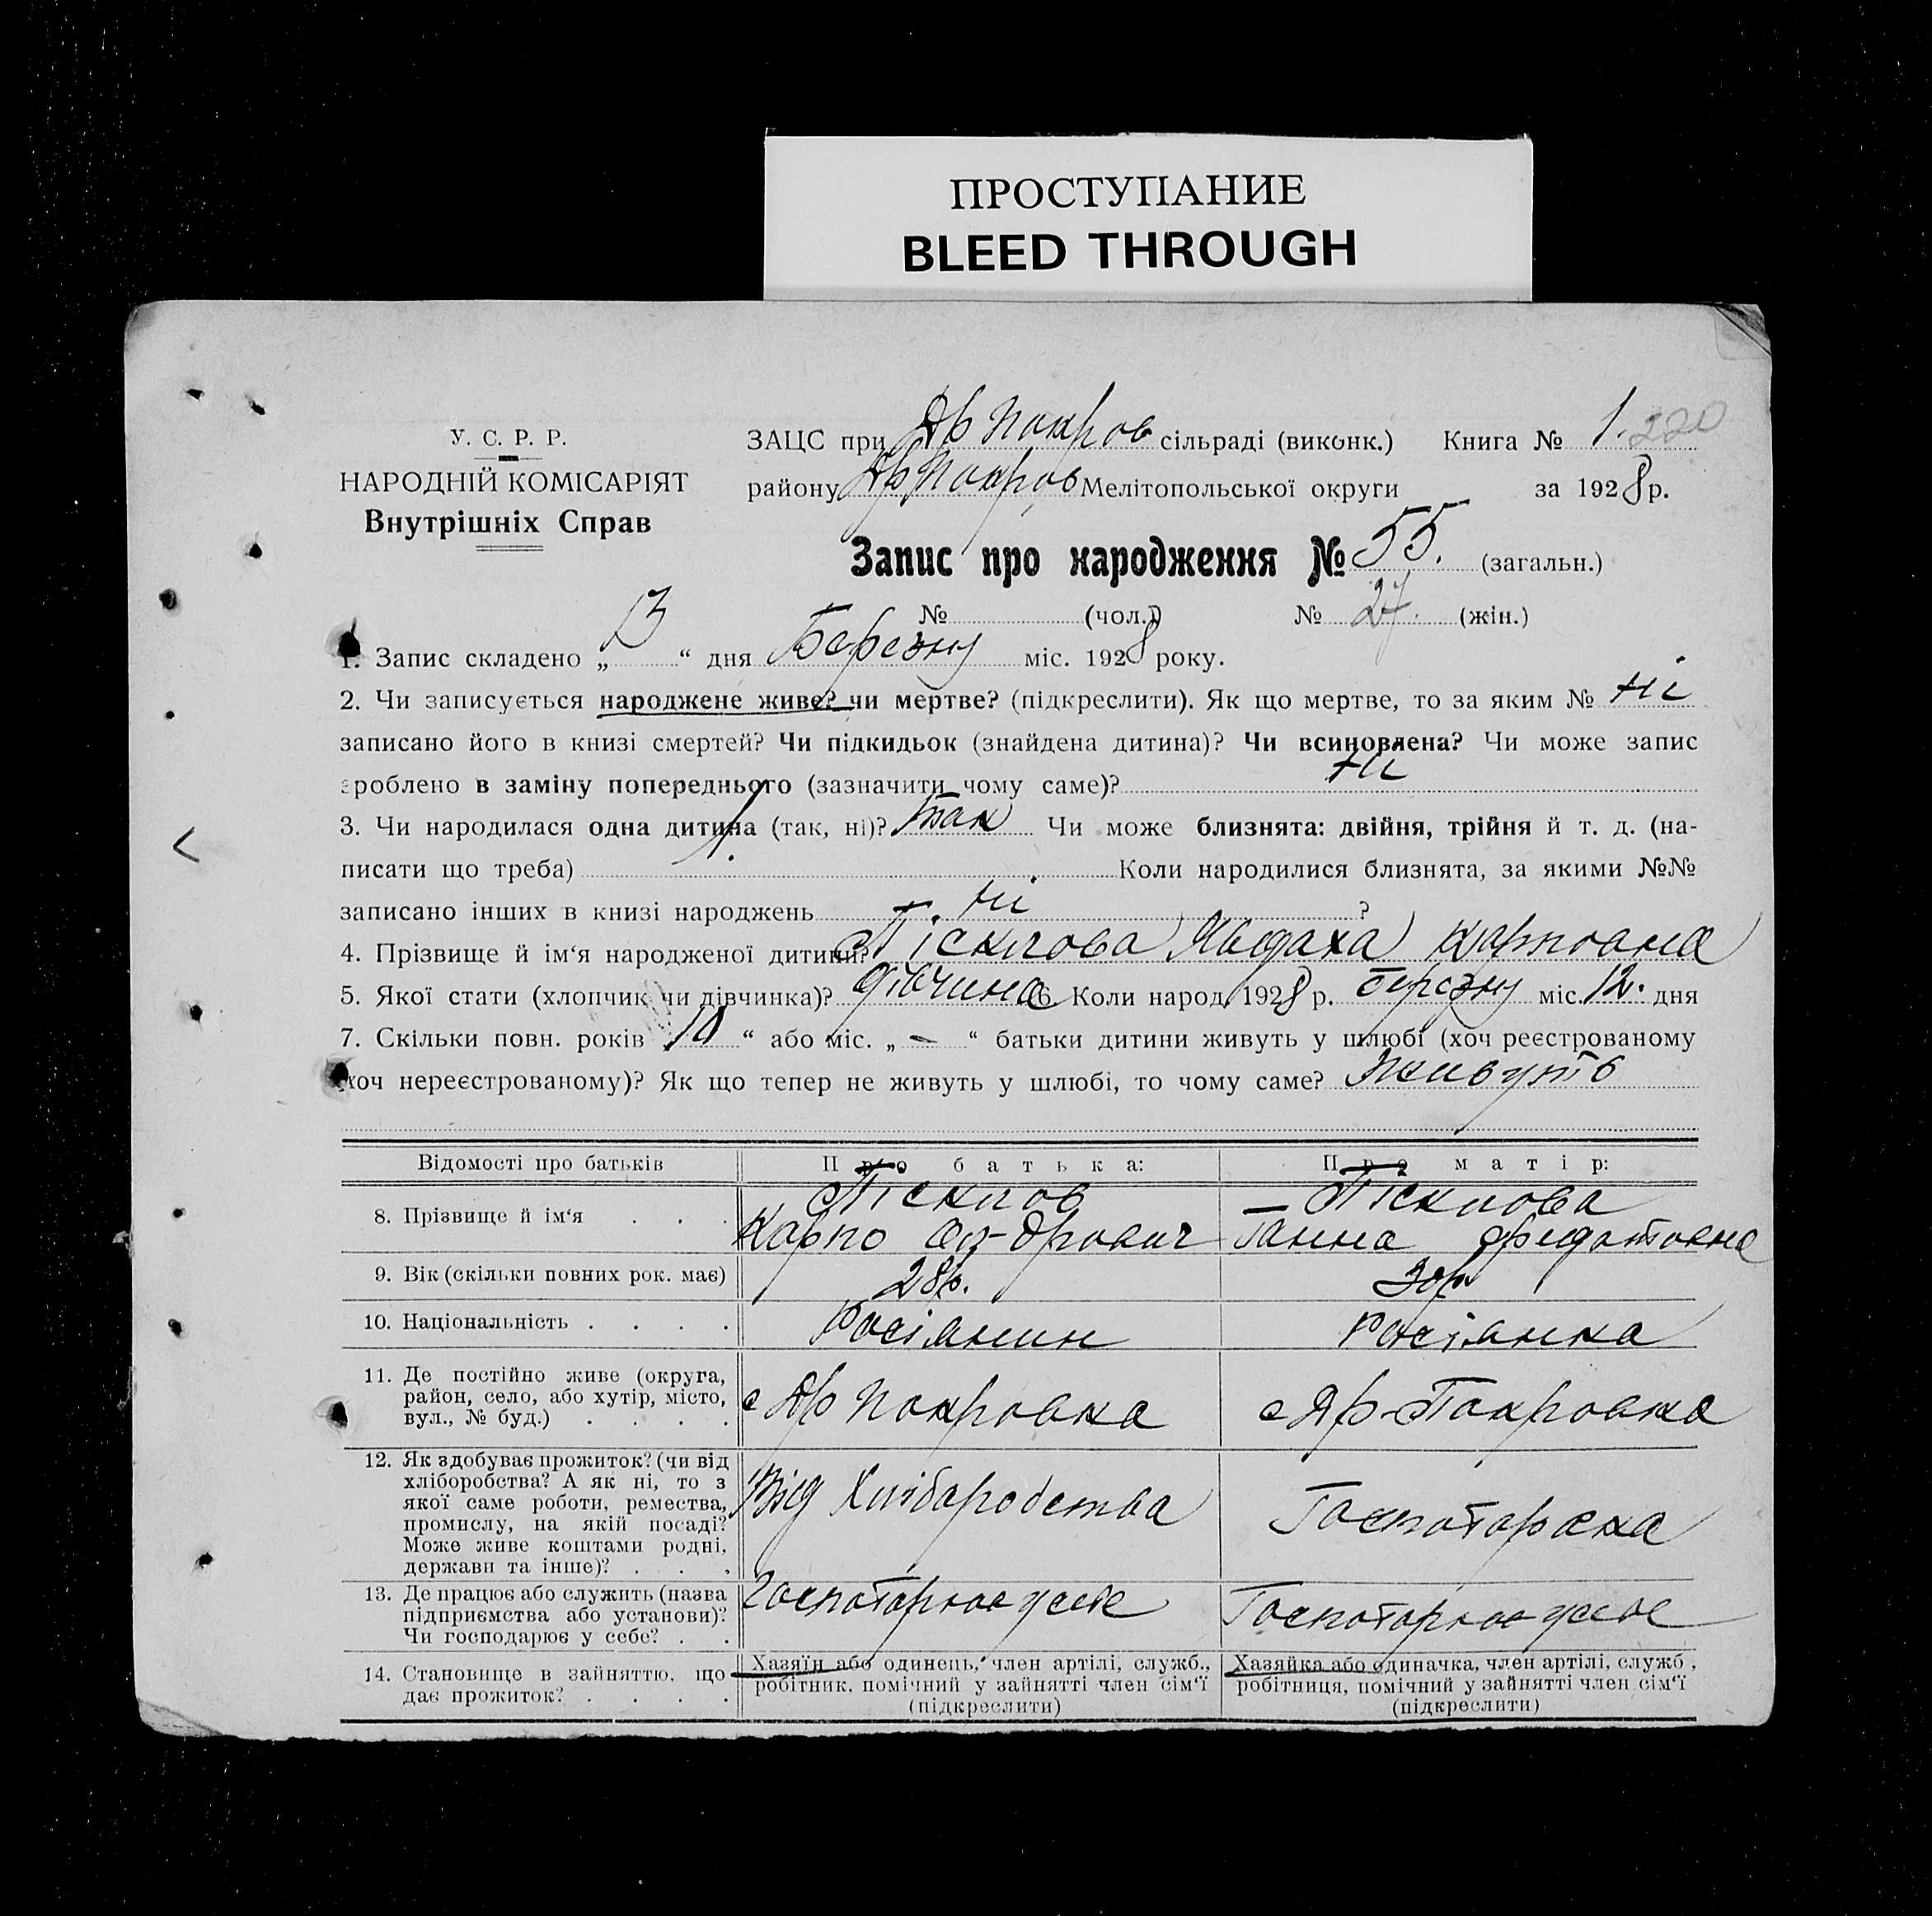 ПРОСТУПАНИЕ
BLEED THROUGH
У. С. Р. Р.
НАРОДНІЙ КОМІСАРІЯТ
Внутрішніх Справ
ЗАЦС при Др Покров сільраді (виконк.) Книга № 1. 220
району Др Покров Мелітопольської округи за 1928 р.
Запис про народження № 55. (загальн.)
№ (чол.) № 27. (жін.)
1. Запис складено „13“ дня Березну міс. 1928 року.
2. Чи записується народжене живе? чи мертве? (підкреслити). Як що мертве, то за яким № ні
записано його в книзі смертей? Чи підкидьок (знайдена дитина)? Чи всиновлена? Чи може запис
зроблено в заміну попереднього (зазначити чому саме)? ні
3. Чи народилася одна дитина (так, ні)? так Чи може близнята: двійня, трійня й т. д. (на-
писати що треба) Коли народилися близнята, за якими №№
записано інших в книзі народжень ні ?
4. Прізвище й ім‘я народженої дитини? Карповна
5. Якої стати (хлопчик чи дівчинка)? дівчина 6. Коли народ. 1928 р. березну міс. 12. дня
7. Скільки повн. років 10 “ або міс. „ – “ батьки дитини живуть у шлюбі (хоч реєстрованому
хоч нереєстрованому)? Як що тепер не живуть у шлюбі, то чому саме? Живуть
Відомості про батьків Про батька: Про матір:
8. Прізвище й ім‘я . . .
Карпо Ганна Федотовна
9. Вік (скільки повних рок. має) 28р. 30р
10. Національність . . . . Росіянин Росіянка
11. Де постійно живе (округа,
район, село, або хутір, місто,
вул., № буд.) . . . .
с Др Покровка с Др-Покровка
12. Як здобуває прожиток? (чи від
хліборобства? А як ні, то з
якої саме роботи, ремества,
промислу, на якій посаді?
Може живе коштами родні,
держави та інше)? . . .
Від Хлібародства
13. Де працює або служить (назва
підприємства або установи)?
Чи господарює у себе? . .
14. Становище в зайняттю, що
дає прожиток? . . . .
Хазяїн або одинець, член артілі, служб.,
робітник, помічний у зайнятті член сім‘ї
(підкреслити)
Хазяйка або одиначка, член артілі, служб.,
робітниця, помічний у зайнятті член сім‘ї
(підкреслити)